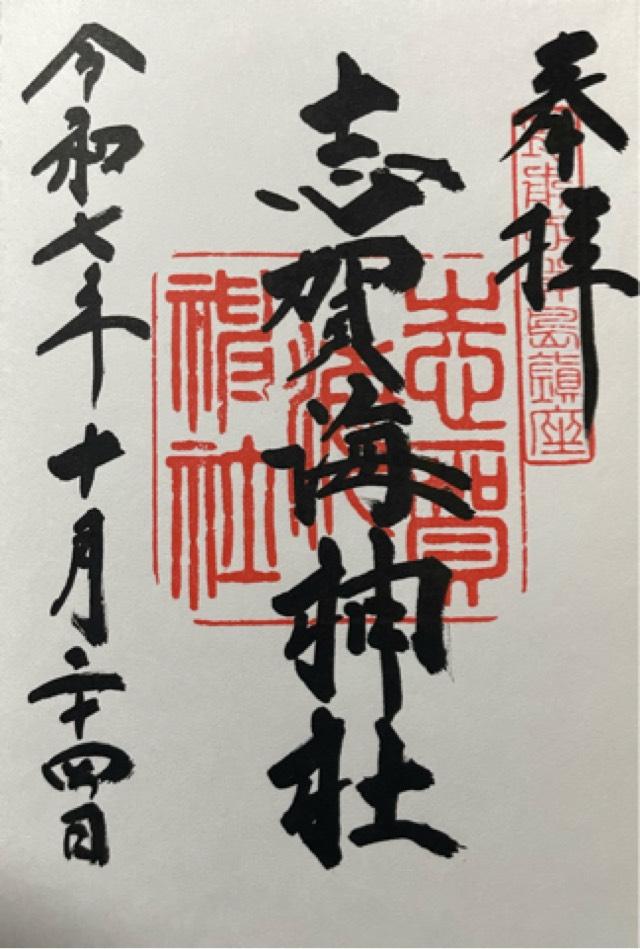 奉拝
志賀海神社
志賀海神社
令和七年十月二十四日